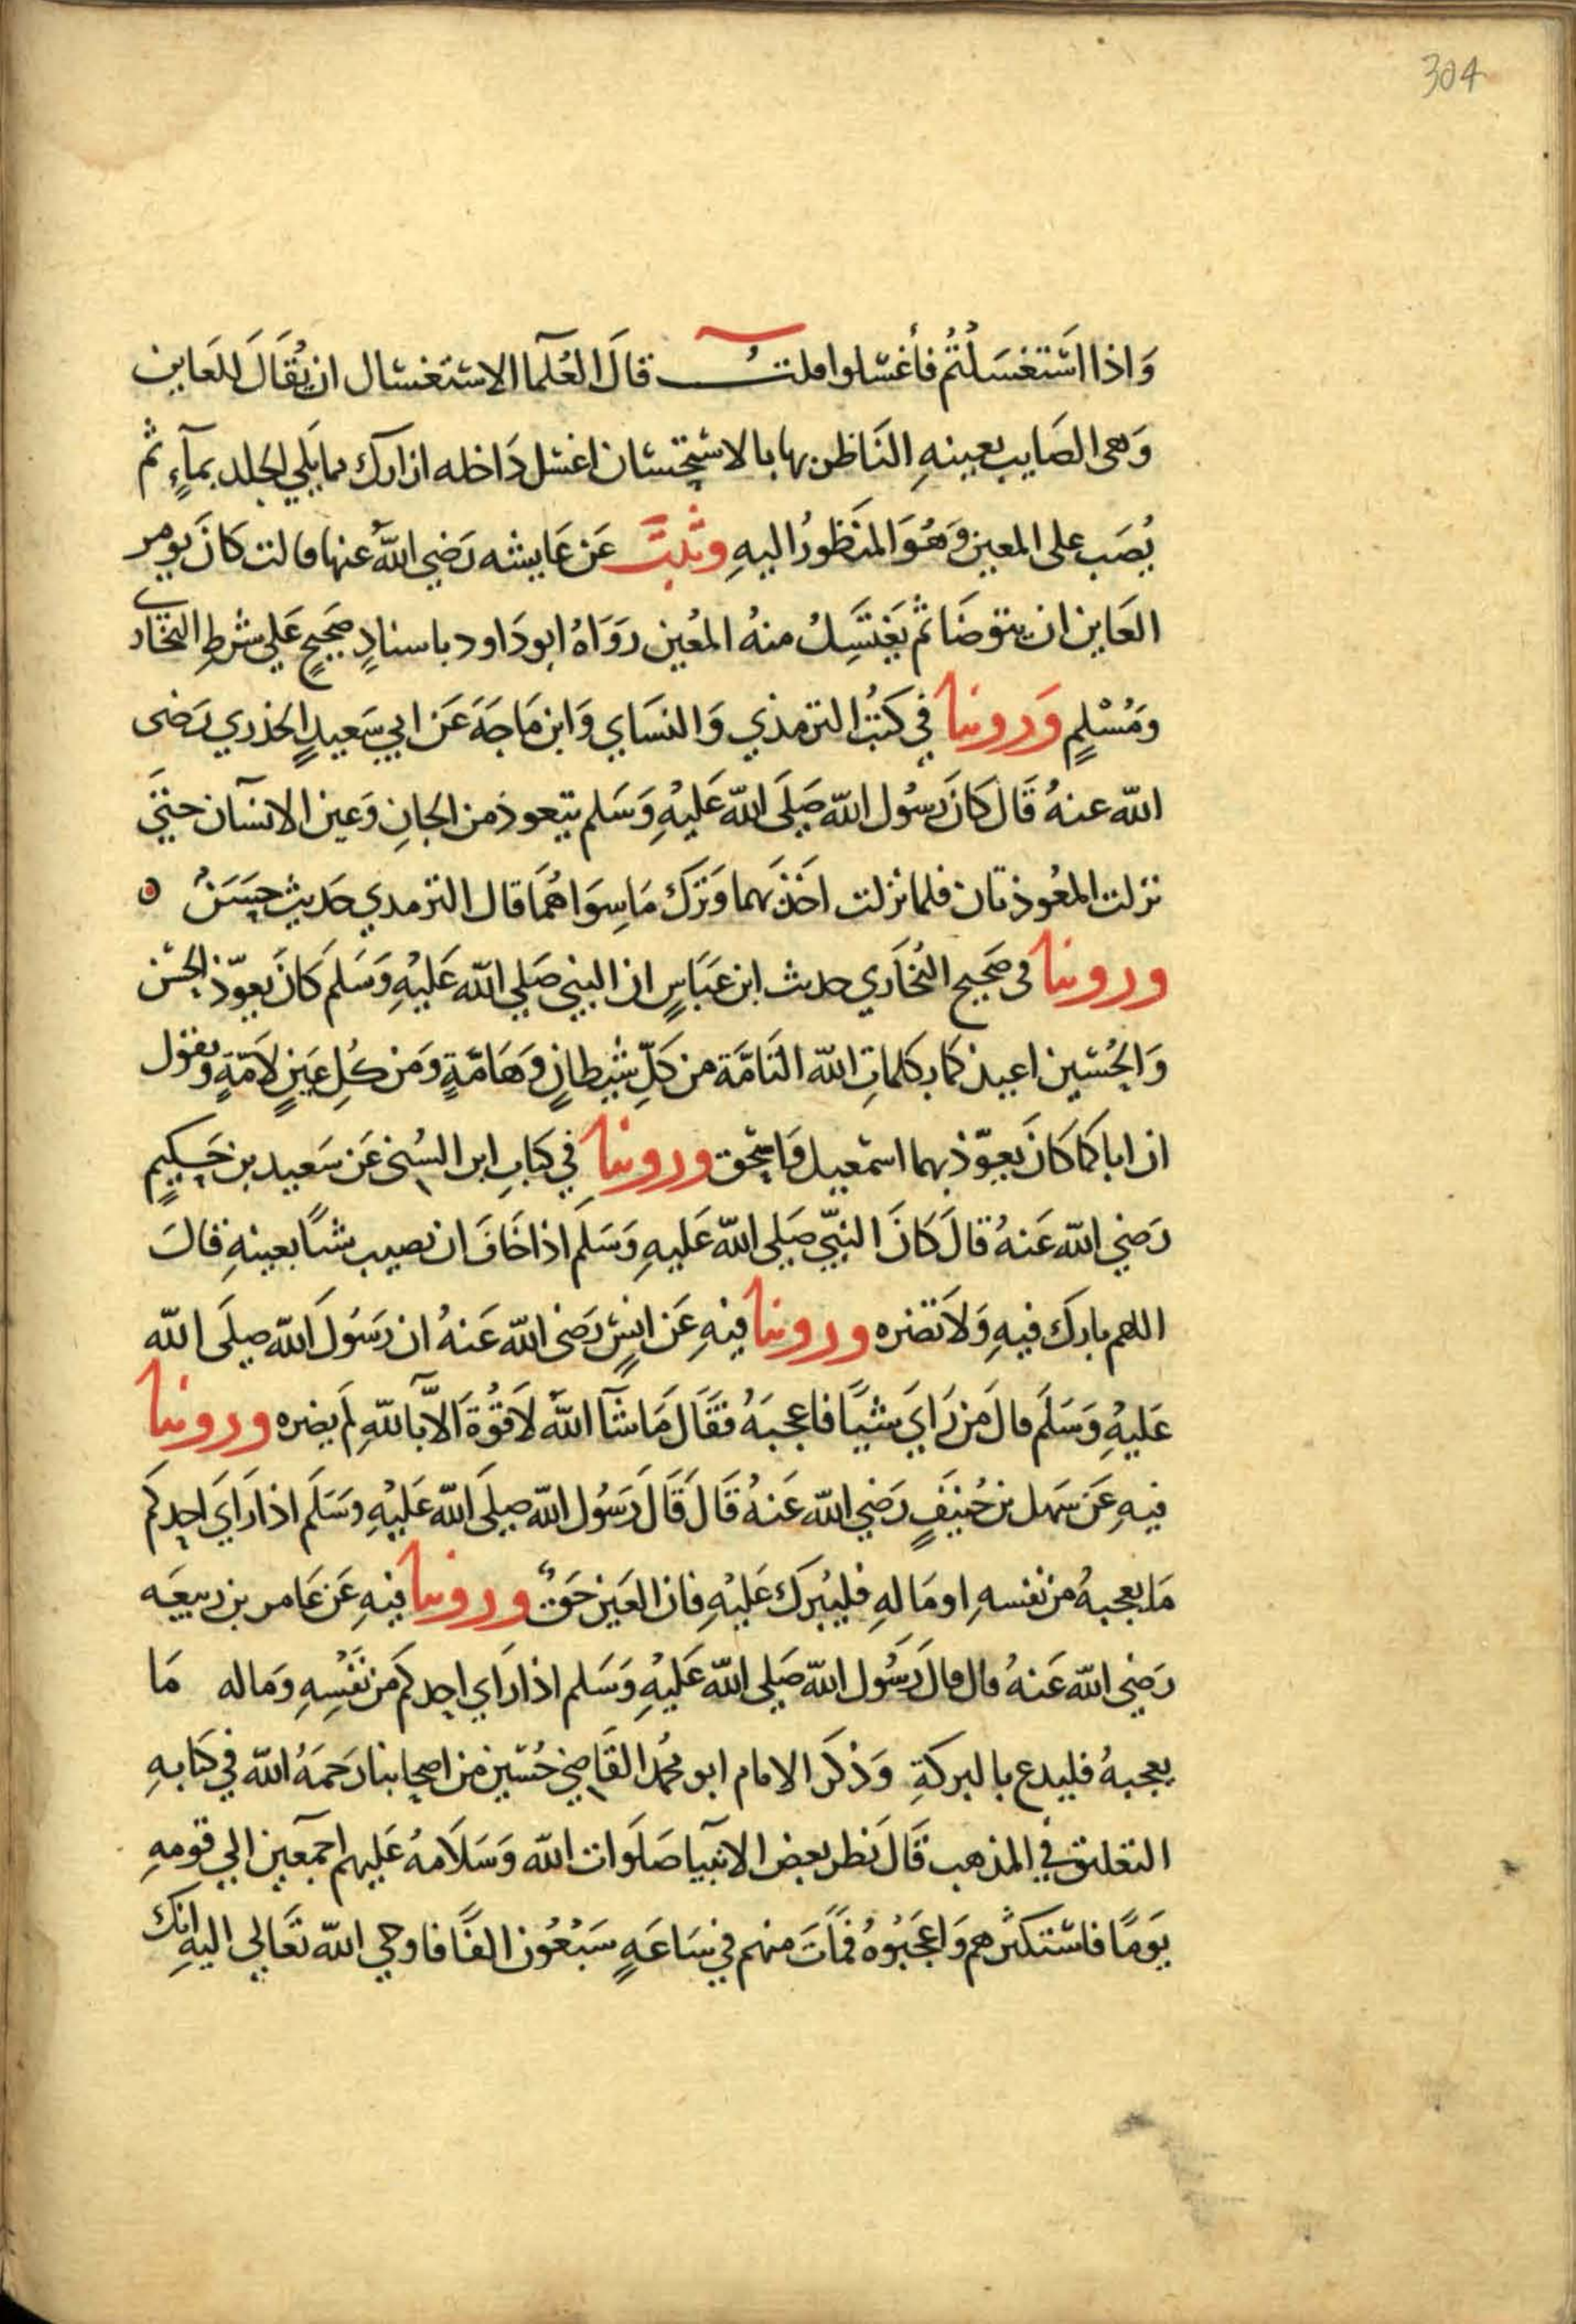 304
وَاذا استَغسَلْتُمْ فأغسلوا قلتُ قالَ العُلَمآ الاستغسَال ان يُقَالَ للعَاين
وَهى الصَايب بعينهِ النَاظر بها بالاستحسَان اغسل دَاخله ازارك مما يَلي الجلد بمآءٍ ثم
يُصَب على المعين وَهُوَ المنَظورُ اليهِ وثبتَ عَن عَايشه رَضي اللهُ عنها قالت كانَ يومر
العَاين ان يتوضَا ثم يَغتَسِلُ منهُ المعُين رَوَاهُ ابو دَاود باسنادٍ صَحيحٍ عَلي شرطِ البخَاري
ومُسْلمٍ وَروينا في كتُب الترمذي وَالنسَاي وَابن مَاجَةَ عَن ابي سَعيدٍ الخذري رَضى
الله عنهُ قَال كانَ رسُول الله صَلَى الله عَليْهِ وَسَلم يتعوذ من الجانِ وَعين الانسَان حتيَّ
نزلت المعُوذتان فلما نزلت اخَذَ بهما وَترَك مَا سِوَاهُمَا قال الترمدي حَديث حسَنٌ ه
وروينا فى صَحيح البُخاَري حديث ابن عَبَاسٍ ان النبي صَلي الله عَليْهِ وَسَلمَ كانَ يعوّذ الحسن
وَالحُسَين اعيذكما بكلماتِ الله التَامَّة من كلِّ شَيطانٍ وَهَامَّةٍ وَمن كُلِ عَينٍ لَامّةٍ ويقول
ان اباكما كانَ يَعوّذ بهما اسمعيل وَاسحق وروينا في كتابِ ابن السُنى عَن سَعيد بن حَكيمٍ
رَضي الله عَنهُ قالَ كانَ النبيّ صَلى الله عَليهِ وَسَلمَ اذا خَافَ ان يصيب شياً بعينهِ قالَ
اللهم بارَك فيهِ وَلَا تضره وروينا فيهِ عَن انسٍ رَضى الله عَنهُ ان رَسُولَ الله صلَى الله
عَليْهِ وَسَلَم قالَ مَن رَايَ شيًا فاعجبَهُ فقَالَ مَا شآ اللهُ لَا قُوَة الَّا بَاللهِ لم يضره وروينا
فيهِ عَن سَهل بن حُنيَفٍ رَضي الله عَنهُ قَالَ قَالَ رَسُول الله صلَى الله عَليْهِ وسَلَم اذا رَايَ احدكم
مَا يعجبهُ من نفسهِ او مَالهِ فليُبَرك عَليْهِ فان العَين حَقٌ وروينا فيهِ عَن عَامر بن رَبيعَه
رَضي الله عَنهُ قال قالَ رَسُول الله صَلي الله عَليْهِ وَسَلم اذا رَاي احدكم من نَفْسِهِ وَماله مَا
يعجبهُ فليدع بالبركةِ وَذكرَ الامام ابو محمد القَاضي حُسَين من اصحابنا رَحمَهُ الله في كتابهِ
التعليق في المذهب قَالَ نَظر بعض الانبيآ صَلَوات الله وَسَلَامهُ عَليهم اجمعَين الي قومهِ
يَومًا فاستكثرهم وَاعجَبُوهُ فمَاتَ منهم في سَاعَةٍ سَبْعُون الفًا فاوحي الله تعَالي اليهِ انك